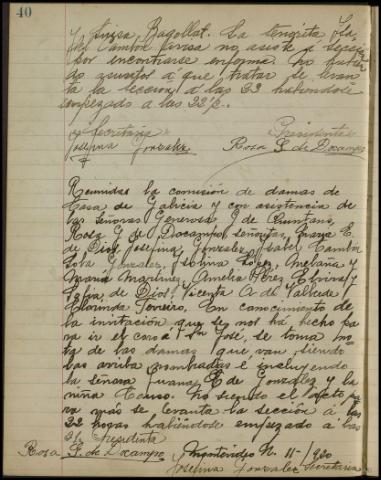 40
y Luisa Bagollat. La señorita Isa-
bel Cambon Jirosa no asiste a sección
por encontrarse enferma. No habien
do asuntos a que tratar se levan
ta la sección a las 23 habiendose
empezado a las 22½.
La Secretaria
Presidenta
Josefina Gonzalez
Rosa G. de Docampo
Reunidas la comisión de damas de
Casa de Galicia y con asistencia de
las señoras Generosa G de Quintans,
Rosa G de Docampo, señoritas, Juana E.
de Dios, Josefina Gonzalez, Isabel Cambon
Lola Gonzalez, Isolina López, Melania y
Maria Martinez, Amelia Pérez, Elvira y
Sofia de Dios, Vicenta A. de Valverde
Florinda Loreiro, En conocimiento de
la invitación que se nos há hecho pa
ra ir el coro a San José, se toma no
ta de las damas que van siendo
las arriba nombradas e incluyendo
la señora Juana E de González y la
niña Couso. No siendo el objeto pa
ra más se levanta la sección a las
22 horas habiendose empezado a las
21½
Presidenta
Rosa G. de Docampo
Montevideo N. 11-/920
Josefina Gonzalez Secretaria